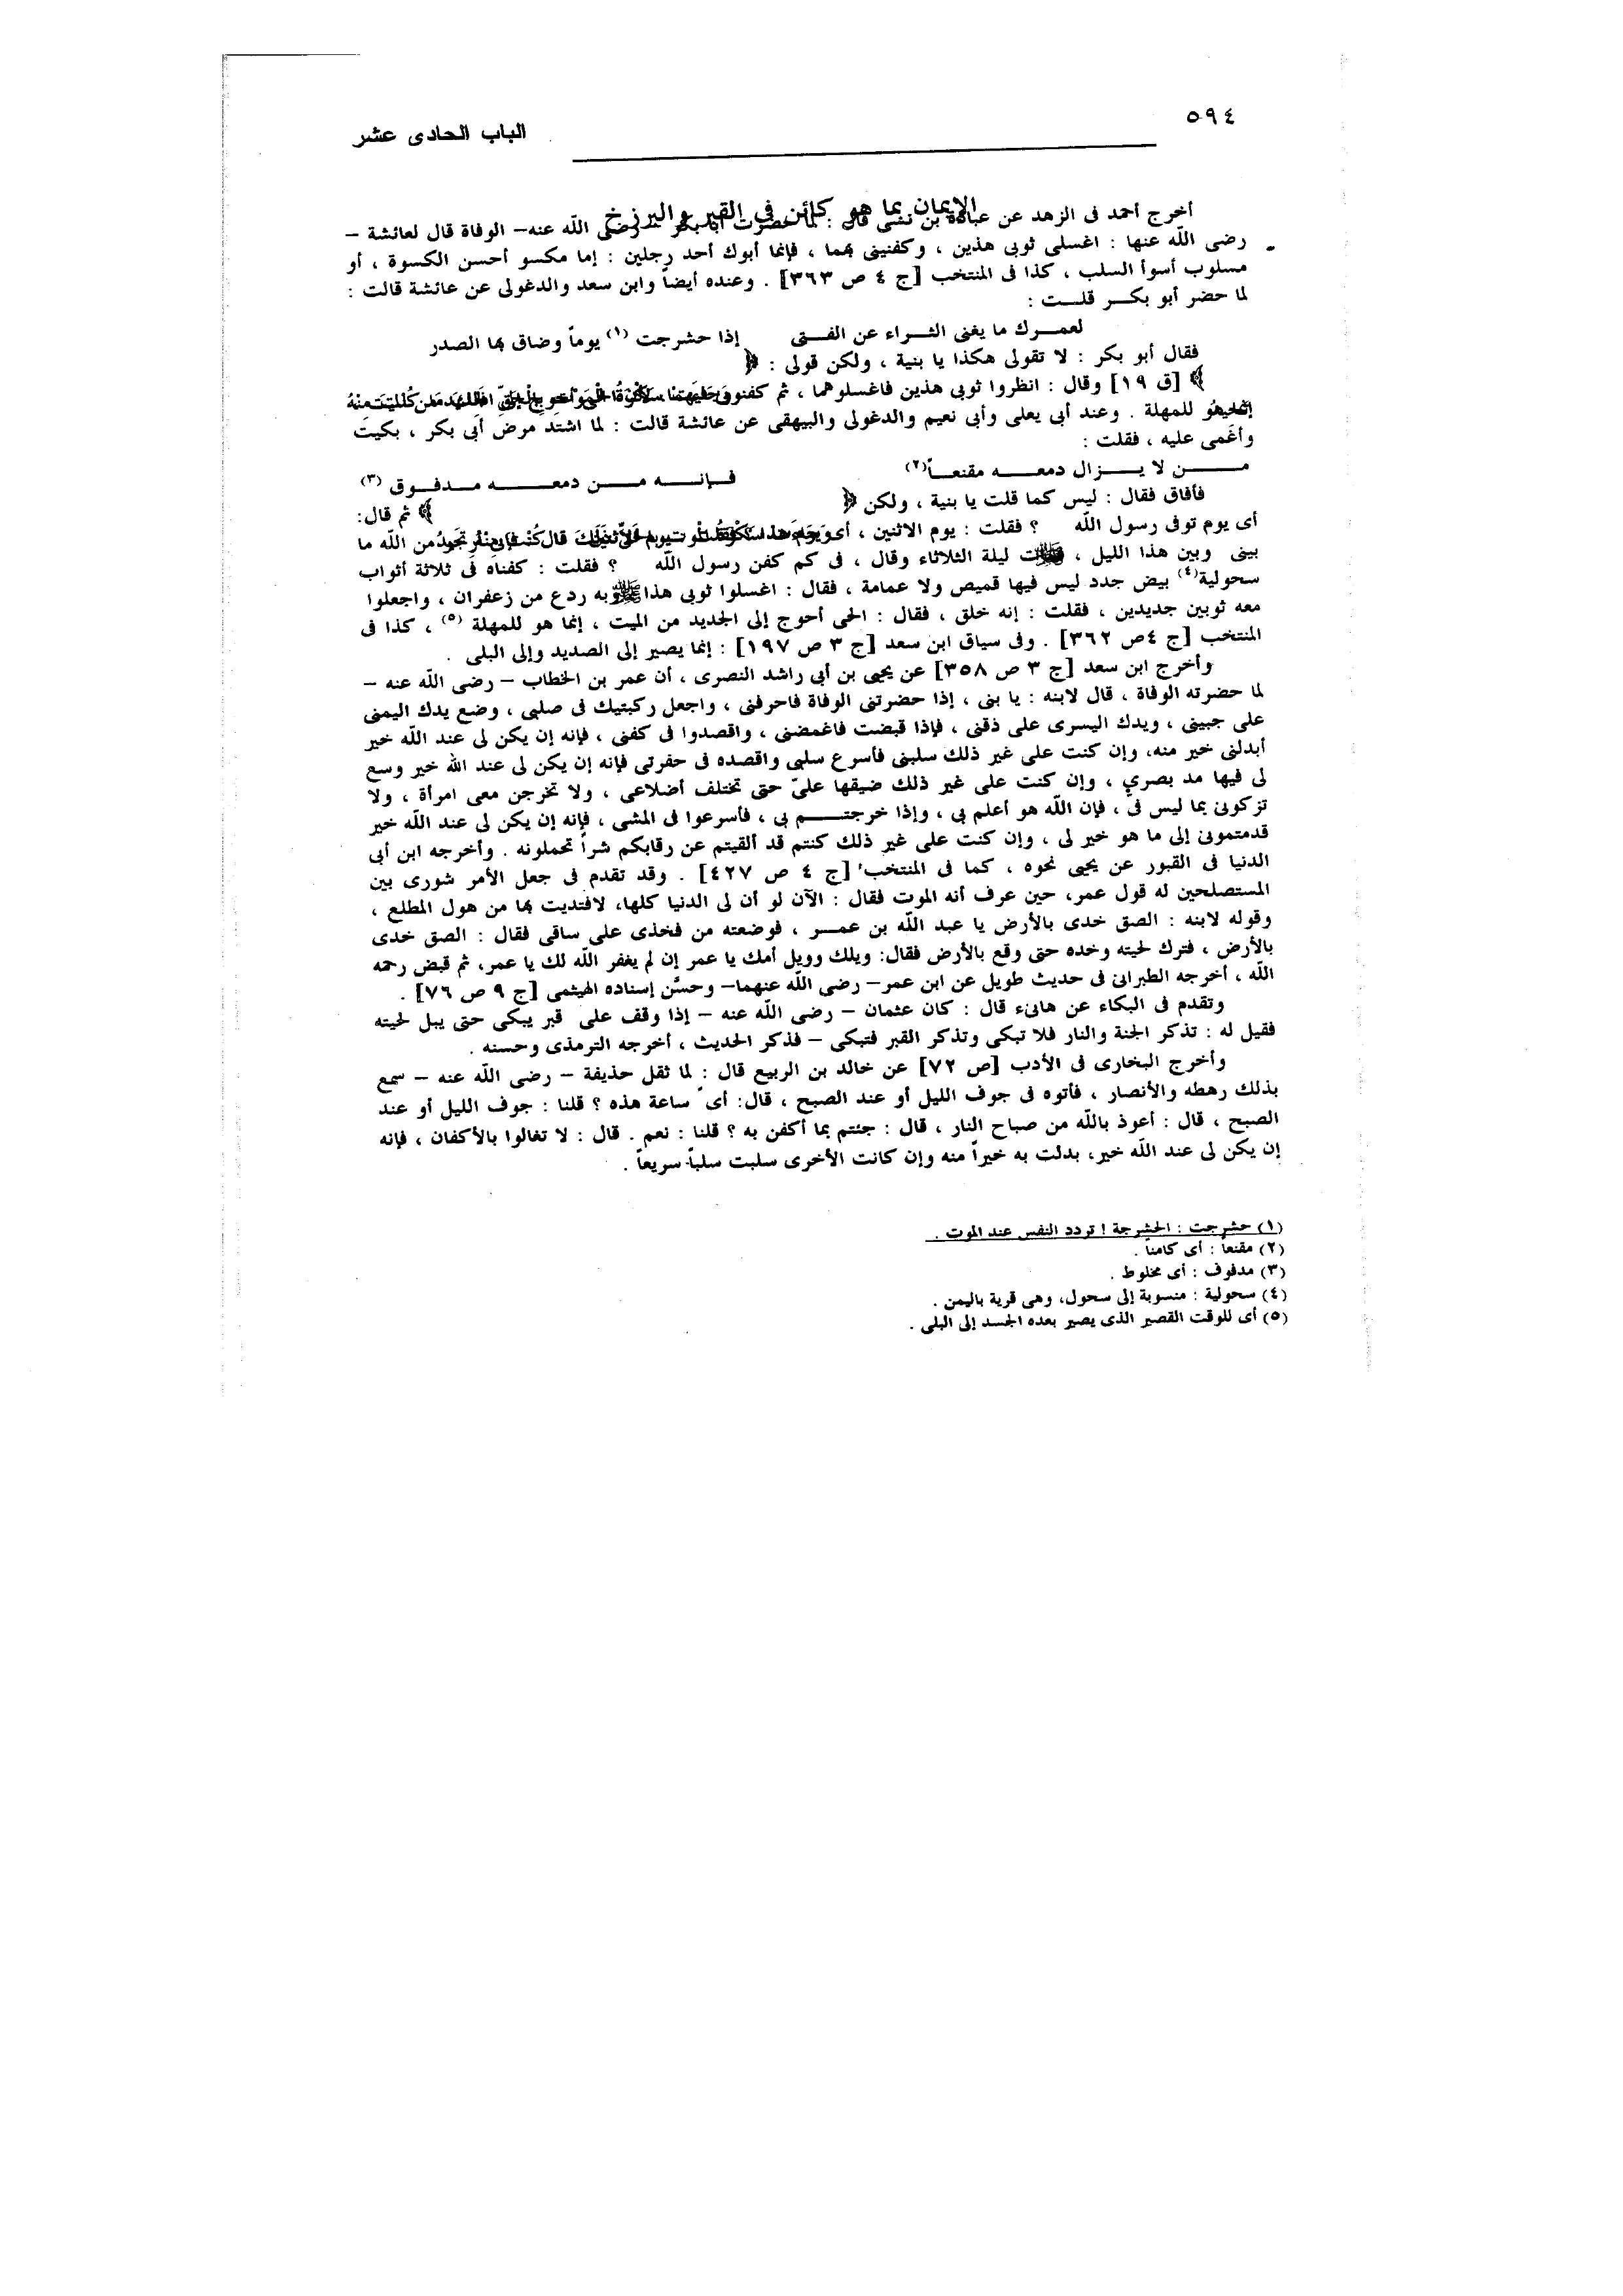 ٥٩٤
الباب الحادى عشر
الإيمان بما هو كائن في القبر والبرزخ
أخرج أحمد فى الزهد عن عبادة بن نسى قال : لما حضرت أبا بكر – رضى اللّه عنه– الوفاة قال لعائشة –
رضى اللّه عنها : اغسلى ثوبى هذين ، وكفنينى بهما ، فإنما أبوك أحد رجلين : إما مكسو أحسن الكسوة ، أو
مسلوب أسوأ السلب ، كذا فى المنتخب [ج ٤ ص ٣٦٣] . وعنده أيضاً وابن سعد والدغولى عن عائشة قالت :
لما حضر أبو بكر قلت :
لعمرك ما يغنى الثراء عن الفتى إذا حشرجت (١) يوماً وضاق بها الصدر
فقال أبو بكر : لا تقولى هكذا يا بنية ، ولكن قولى : ﴿
﴾ [ق ١٩] وقال : انظروا ثوبى هذين فاغسلوهما ، ثم كفنونى
إنما هو للمهلة . وعند أبى يعلى وأبى نعيم والدغولى والبيهقى عن عائشة قالت : لما اشتد مرض أبى بكر ، بكيت
وأغمى عليه ، فقلت :
من لا يزال دمعه مقنعاً(٢) فإنه من دمعه مدفوق (٣)
فأفاق فقال : ليس كما قلت يا بنية ، ولكن ﴿ ﴾ ثم قال:
أى يوم توفى رسول اللّه ؟ فقلت : يوم الاثنين ، أى من اللّه ما
بينى وبين هذا الليل ، ليلة الثلاثاء وقال ، فى كم كفن رسول اللّه ؟ فقلت : كفناه فى ثلاثة أثواب
سحولية(٤) بيض جدد ليس فيها قميص ولا عمامة ، فقال : اغسلوا ثوبى هذا وبه ردع من زعفران ، واجعلوا
معه ثوبين جديدين ، فقلت : إنه خلق ، فقال : الحى أحوج إلى الجديد من الميت ، إنما هو للمهلة (٥) ، كذا فى
المنتخب [ج ٤ص ٣٦٢] . وفى سياق ابن سعد [ج ٣ ص ١٩٧] : إنما يصير إلى الصديد وإلى البلى .
وأخرج ابن سعد [ج ٣ ص ٣٥٨] عن يحيى بن أبى راشد النصرى ، أن عمر بن الخطاب – رضى اللّه عنه –
لما حضرته الوفاة ، قال لابنه : يا بنى ، إذا حضرتنى الوفاة فاحرفنى ، واجعل ركبتيك فى صلبى ، وضع يدك اليمنى
على جبينى ، ويدك اليسرى على ذقنى ، فإذا قبضت فاغمضنى ، واقصدوا فى كفنى ، فإنه إن يكن لى عند اللّه خير
أبدلنى خير منه، وإن كنت على غير ذلك سلبنى فأسرع سلبى واقصده فى حفرتى فإنه إن يكن لى عند الله خير وسع
لى فيها مد بصري ، وإن كنت على غير ذلك ضيقها علىّ حتى تختلف أضلاعى ، ولا تخرجن معى امرأة ، ولا
تزكونى بما ليس فىّ ، فإن اللّه هو أعلم بى ، وإذا خرجتم بى ، فأسرعوا فى المشى ، فإنه إن يكن لى عند اللّه خير
قدمتمونى إلى ما هو خير لى ، وإن كنت على غير ذلك كنتم قد ألقيتم عن رقابكم شراً تحملونه . وأخرجه ابن أبى
الدنيا فى القبور عن يحيى نحوه ، كما فى المنتخب [ج ٤ ص ٤٢٧] . وقد تقدم فى جعل الأمر شورى بين
المستصلحين له قول عمر، حين عرف أنه الموت فقال : الآن لو أن لى الدنيا كلها، لافتديت بها من هول المطلع ،
وقوله لابنه : الصق خدى بالأرض يا عبد اللّه بن عمر ، فوضعته من فخذى على ساقى فقال : الصق خدى
بالأرض ، فترك لحيته وخده حتى وقع بالأرض فقال: ويلك وويل أمك يا عمر إن لم يغفر اللّه لك يا عمر، ثم قبض رحمه
اللّه ، أخرجه الطبرانى فى حديث طويل عن ابن عمر– رضى اللّه عنهما– وحسَّن إسناده الهيثمى [ج ٩ ص ٧٦] .
وتقدم فى البكاء عن هانىء قال : كان عثمان – رضى اللّه عنه – إذا وقف على قبر يبكى حتى يبل لحيته
فقيل له : تذكر الجنة والنار فلا تبكى وتذكر القبر فتبكى – فذكر الحديث ، أخرجه الترمذى وحسنه .
وأخرج البخارى فى الأدب [ص ٧٢] عن خالد بن الربيع قال : لما ثقل حذيفة – رضى اللّه عنه – سمع
بذلك رهطه والأنصار ، فأتوه فى جوف الليل أو عند الصبح ، قال: أى ساعة هذه ؟ قلنا : جوف الليل أو عند
الصبح ، قال : أعوذ باللّه من صباح النار ، قال : جئتم بما أكفن به ؟ قلنا : نعم . قال : لا تغالوا بالأكفان ، فإنه
إن يكن لى عند اللّه خير، بدلت به خيراً منه وإن كانت الأخرى سلبت سلباً سريعاً .
(١) حشرجت : الحشرجة ! تردد النفس عند الموت .
(٢) مقنعاً : أى كامناً .
(٣) مدفوف : أى مخلوط .
(٤) سحولية : منسوبة إلى سحول، وهى قرية باليمن .
(٥) أى للوقت القصير الذى يصير بعده الجسد إلى البلى .